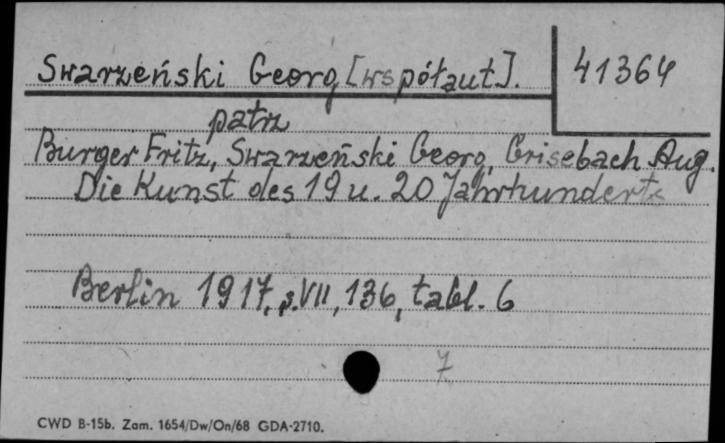 Swarzeński Georg [współaut]. 41364
patrz
Burger Fritz, Swarzeński Georg, Grisebach Aug.
Die Kunst des 19 u. 20 Jahrhunderts
Berlin 1917, s. VII, 136, tabl. 6
7
CWD B-15b. Zam. 1654/Dw/On/68 GDA-2710.